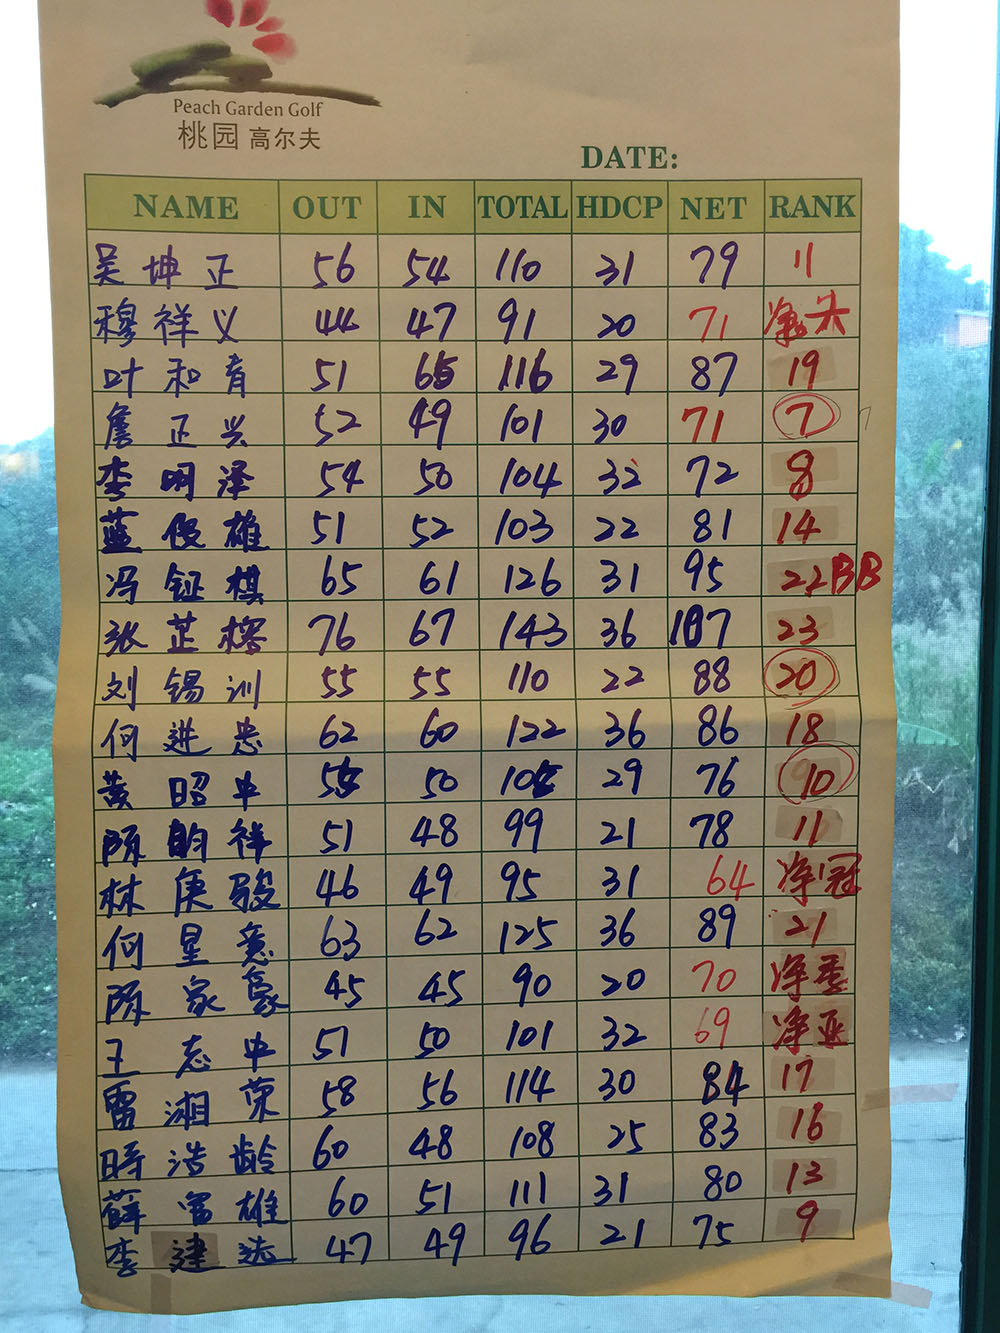 Peach Garden Golf
桃园 高尔夫
DATE:
NAME OUT IN TOTAL HDCP NET RANK
吴坤正 56 54 110 31 79 11
穆祥义 44 47 91 20 71 净
叶和青 51 65 116 29 87 19
詹正兴 52 49 101 30 71 7
李明泽 54 50 104 32 72 8
蓝俊雄 51 52 103 22 81 14
冯钲棋 65 61 126 31 95 22 BB
张芷榕 76 67 143 36 107 23
刘锡训 55 55 110 22 88 20
何进忠 62 60 122 36 86 18
黄昭中 55 50 105 29 76 10
陈韵祥 51 48 99 21 78 11
林庚骏 46 49 95 31 64 净冠
何星意 63 62 125 36 89 21
陈家豪 45 45 90 20 70 净季
王志中 51 50 101 32 69 净亚
雷湘荣 58 56 114 30 84 17
時浩龄 60 48 108 25 83 16
薛富雄 60 51 111 31 80 13
李建选 47 49 96 21 75 9